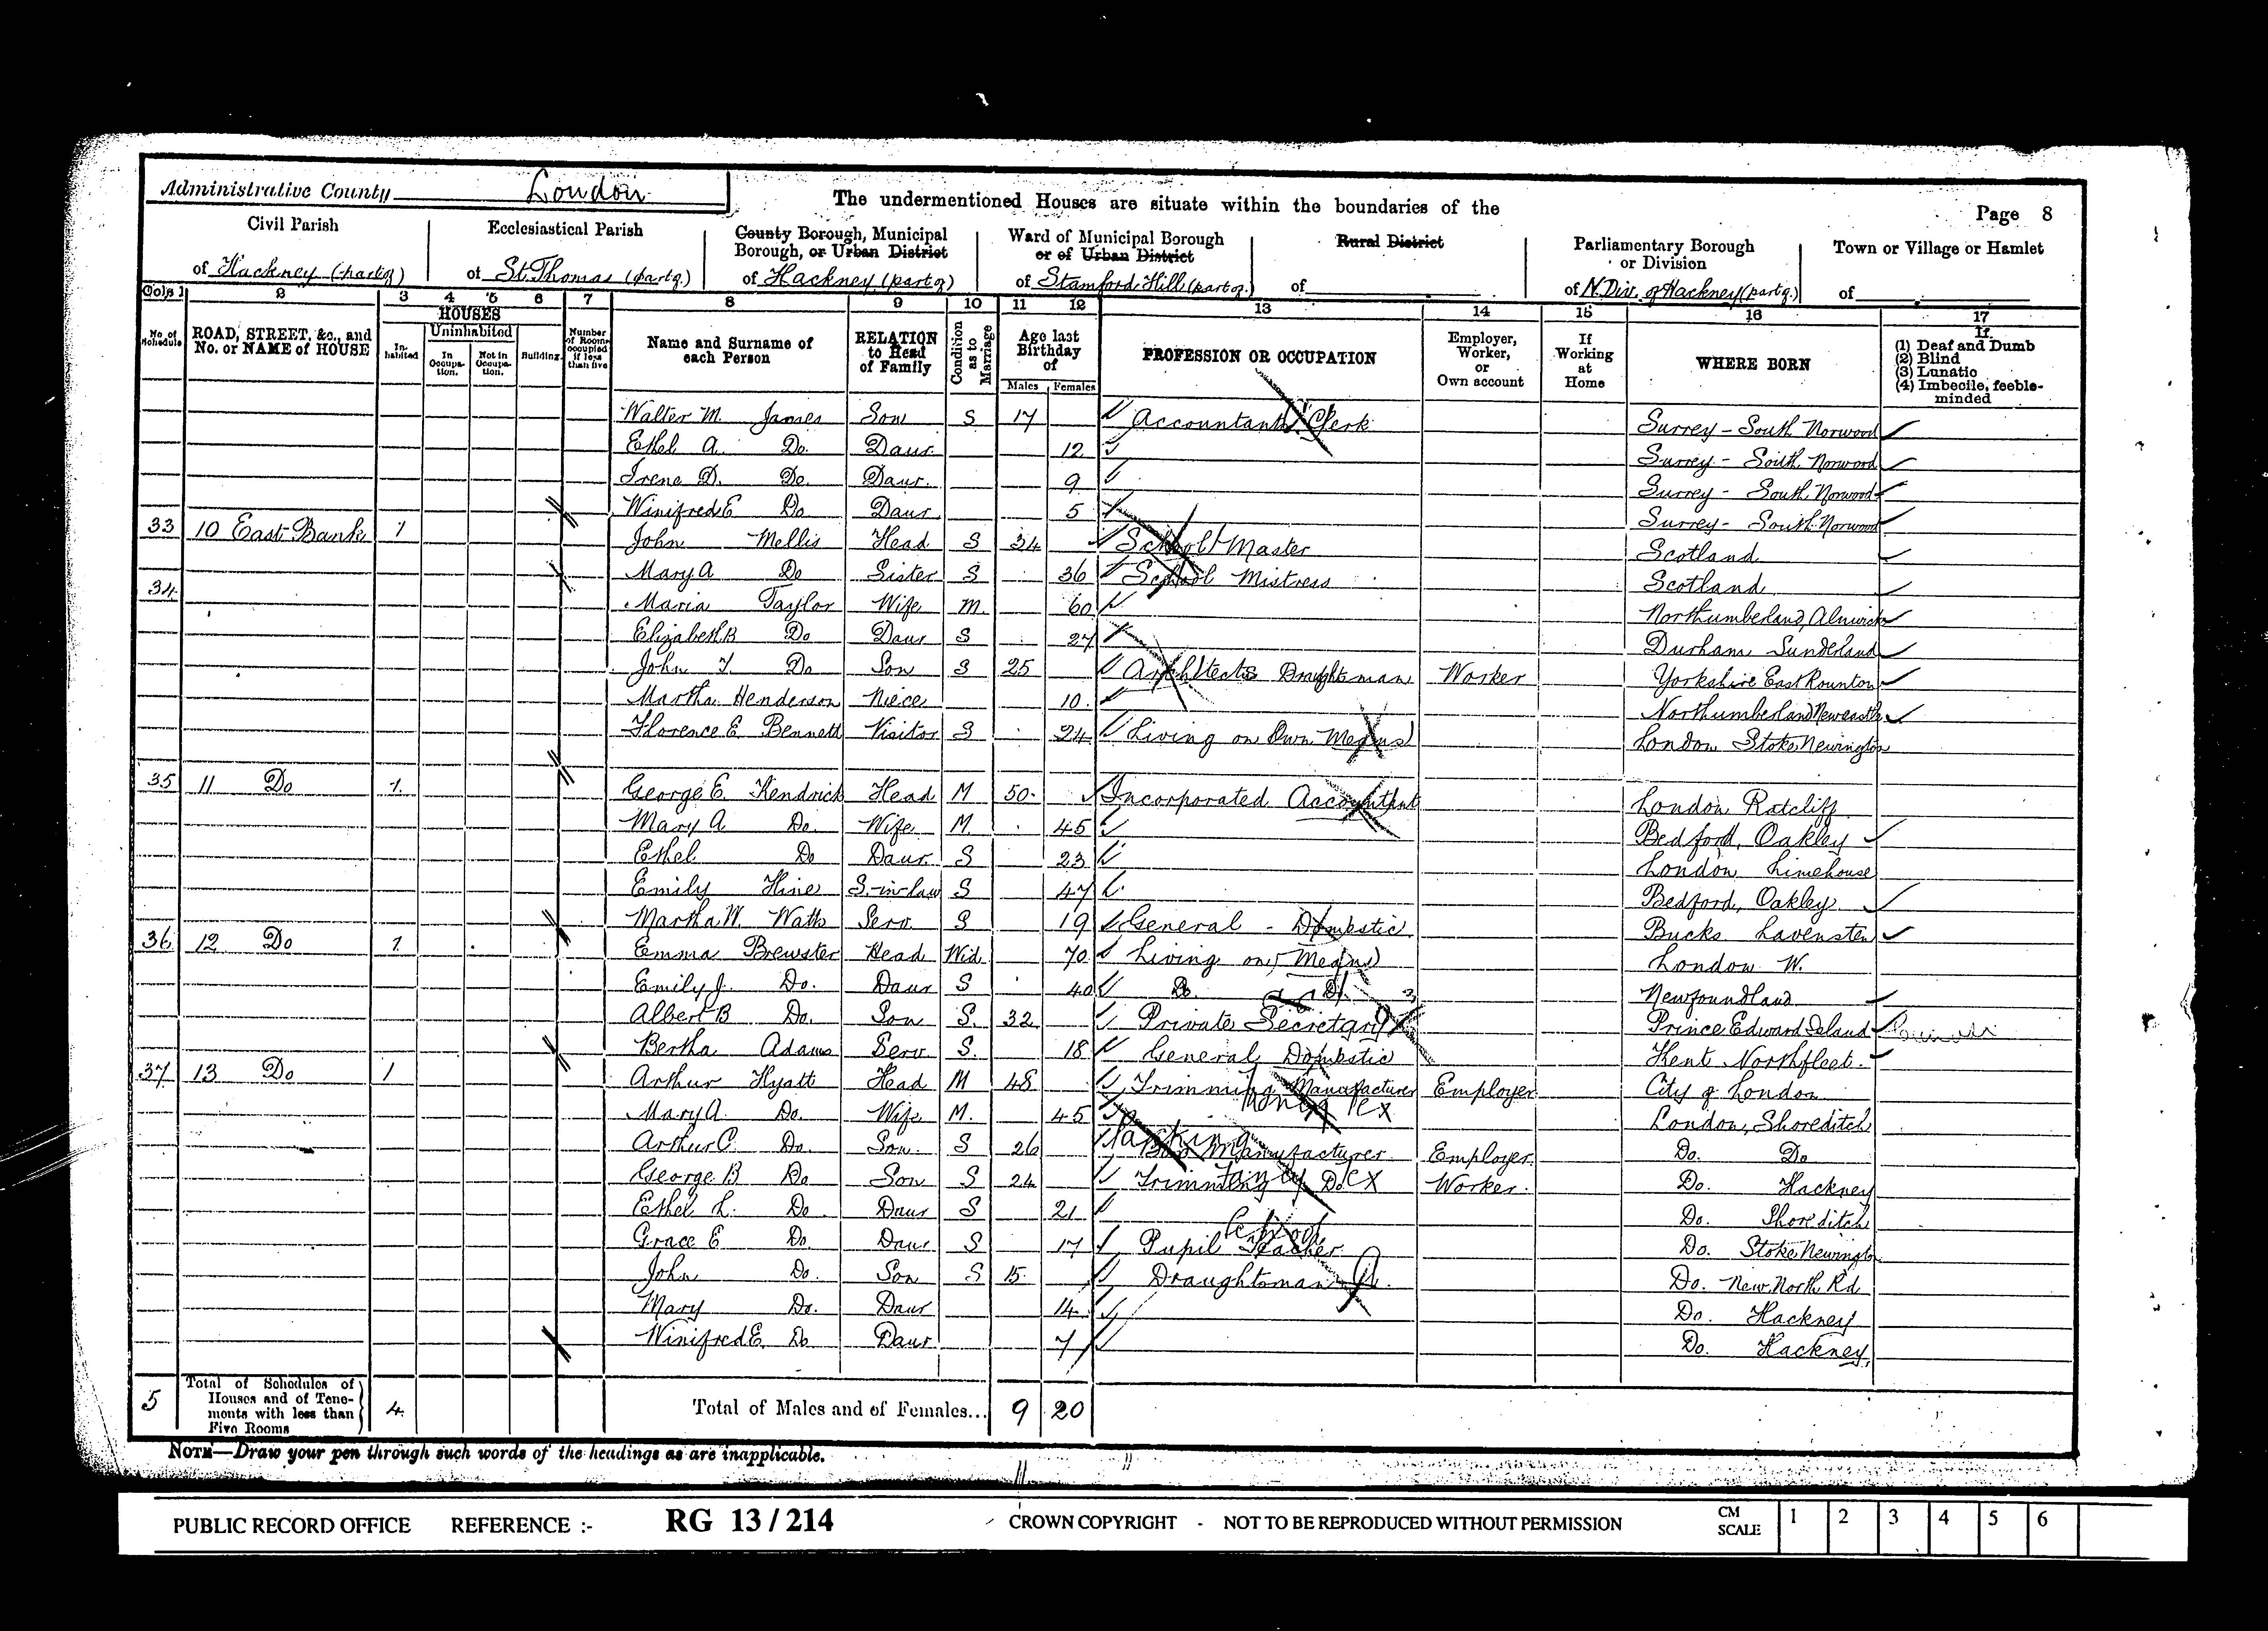 Administrative County London
The undermentioned Houses are situate within the boundaries of the
Page 8
Civil Parish
of Hackney (part of)
Ecclesiastical Parish
of St. Thomas (part of)
County Borough, Municipal Borough, or Urban District
of Hackney (part of)
Ward of Municipal Borough or of Urban District
of Stamford Hill (part of)
Rural District
of
Parliamentary Borough or Division
of N. Div. of Hackney (part of)
Town or Village or Hamlet
of
Cols 1 2 3 4 5 6 7 8 9 10 11 12 13 14 15 16 17
No. of Schedule
ROAD, STREET, &c., and No. or NAME of HOUSE
HOUSES
Inhabited
Uninhabited
In Occupation.
Not in Occupation.
Building.
Number of Rooms occupied if less than five
Name and Surname of each Person
RELATION to Head of Family
Condition as to Marriage
Age last Birthday of
Males Females
PROFESSION OR OCCUPATION
Employer, Worker, or Own account
If Working at Home
WHERE BORN
If
(1) Deaf and Dumb
(2) Blind
(3) Lunatic
(4) Imbecile, feeble-minded
Walter M. James Son S 17 Accountants Clerk Surrey - South Norwood
Ethel A. Do. Daur. 12 Surrey - South Norwood
Irene D. Do Daur. 9 Surrey - South Norwood
Winifred E Do Daur 5 Surrey - South Norwood
33 10 East Bank 1 John Mellis Head S 34 School Master Scotland
Mary A Do Sister S 36 School Mistress Scotland
34 Maria Taylor Wife M. 60 Northumberland, Alnwick
Elizabeth B Do Daur S 27 Durham Sunderland
John T. Do Son S 25 Architects Draughtsman Worker Yorkshire East Rounton
Martha Henderson Niece 10 Northumberland Newcastle
Florence E. Bennett Visitor S 24 Living on Own Means London Stoke Newington
35 11 Do 1 George E. Kendrick Head M 50 Incorporated Accountant London Ratcliff
Mary A Do. Wife M. 45 Bedford, Oakley
Ethel Do Daur. S 23 London Limehouse
Emily Hine S.-in-law S 47 Bedford, Oakley
Martha W. Watts Serv. S 19 General - Domestic Bucks Lavensten
36 12 Do 1 Emma Brewster Head Wid. 70 Living on Means London W.
Emily J. Do. Daur S 40 Do. Do. Newfoundland
Albert B Do. Son S. 32 Private Secretary Prince Edward Island
Bertha Adams Serv S. 18 General Domestic Kent Northfleet.
37 13 Do 1 Arthur Hyatt Head M 48 Trimming Manufacturer Employer City of London
Mary A. Do. Wife M. 45 London, Shoreditch
Arthur C. Do. Son. S 26 Box Manufacturer Employer Do. Do
George B Do Son S 24 Trimming Do. Worker. Do. Hackney
Ethel L. Do Daur S 21 Do. Shoreditch
Grace E Do. Daur S 17 Pupil Teacher School Do. Stoke Newington
John Do. Son S 15 Draughtsman Do. New North Rd
Mary Do. Daur 14 Do. Hackney
Winifred E. Do Daur 7 Do. Hackney
5 Total of Schedules of Houses and of Tenements with less than Five Rooms 4 Total of Males and of Females... 9 20
NOTE—Draw your pen through such words of the headings as are inapplicable.
PUBLIC RECORD OFFICE REFERENCE :- RG 13 / 214 CROWN COPYRIGHT - NOT TO BE REPRODUCED WITHOUT PERMISSION CM SCALE 1 2 3 4 5 6